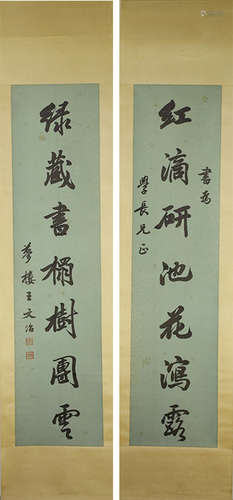 紅滴研池花瀉露
書為
學長兄正
綠藏書榻樹團雲
夢樓王文治